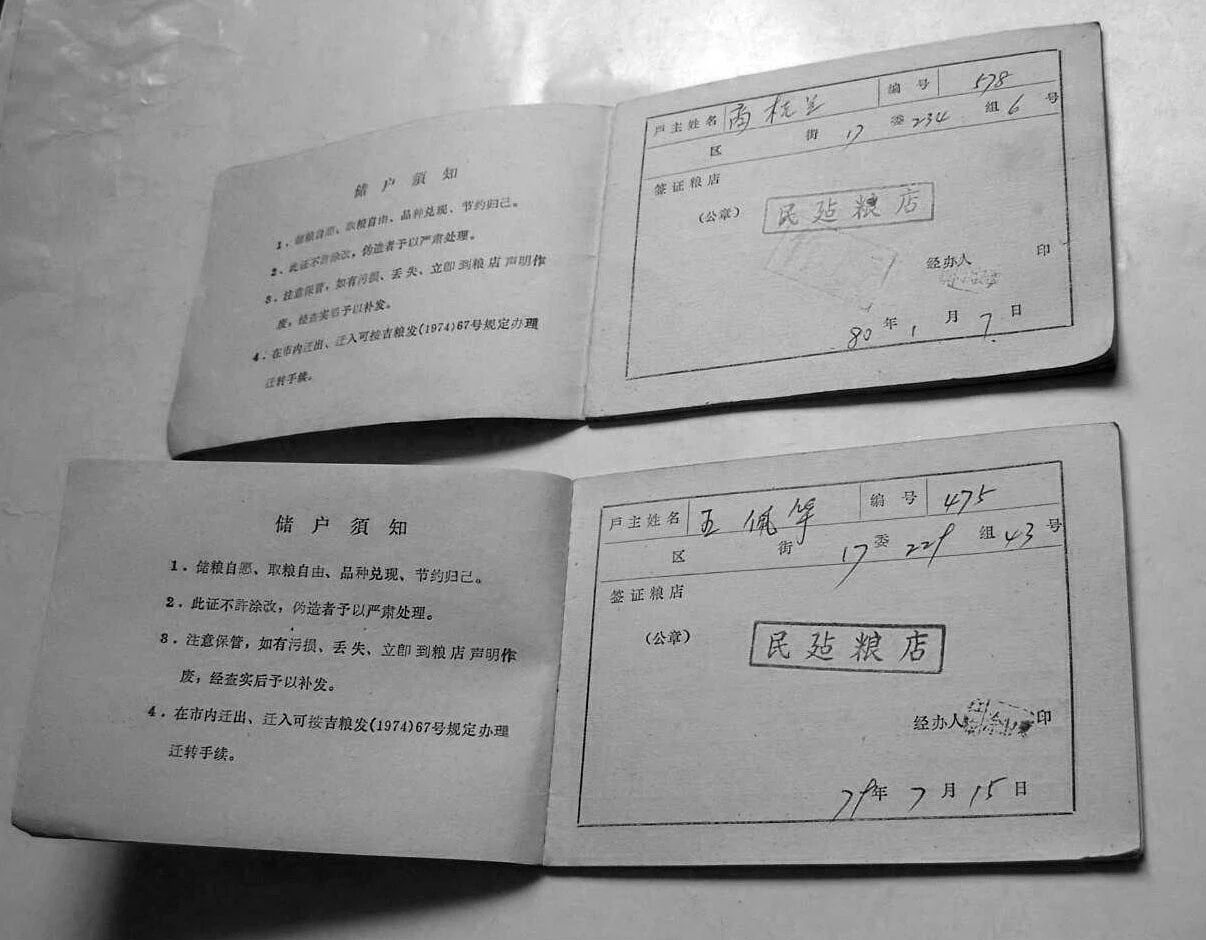 储户須知
1．储粮自愿、取粮自由、品种兑现、节约归己。
2．此证不許涂改，伪造者予以严肃处理。
3．注意保管，如有污损、丢失、立即到粮店声明作
废，经查实后予以补发。
4．在市内迁出、迁入可按吉粮发(1974)67号规定办理
迁转手续。
户主姓名 编号 578
区 街 17 委 234 组 6 号
签证粮店
(公章) 民延粮店
经办人 印
80年1月7日
储户須知
1．储粮自愿、取粮自由、品种兑现、节约归己。
2．此证不許涂改，伪造者予以严肃处理。
3．注意保管，如有污损、丢失、立即到粮店声明作
废，经查实后予以补发。
4．在市内迁出、迁入可按吉粮发(1974)67号规定办理
迁转手续。
户主姓名 王佩 编号 475
区 街 17 委 229 组 43 号
签证粮店
(公章) 民延粮店
经办人 印
79年7月15日